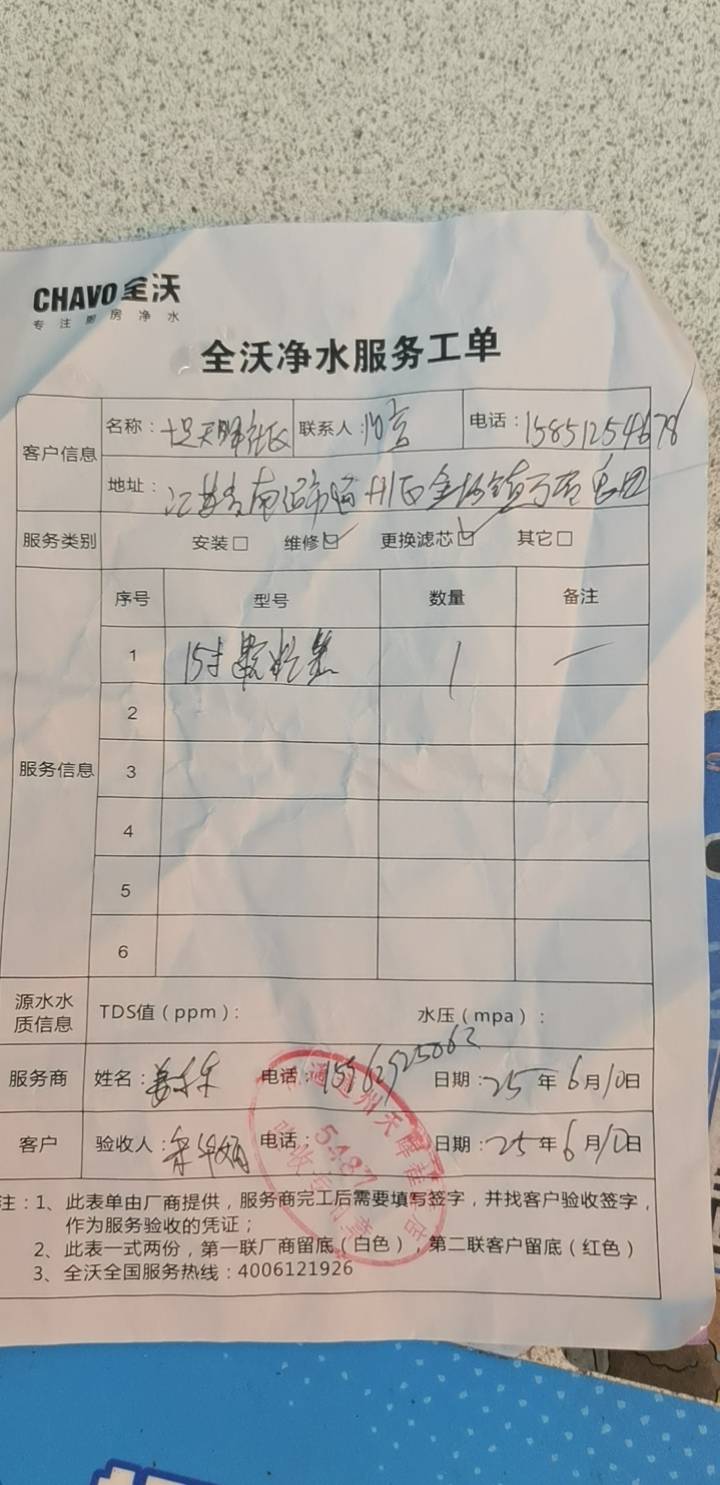 CHAVO 全沃
专注厨房净水
全沃净水服务工单
客户信息
名称: 联系人: 电话:15851254678
地址:江苏省南通市通州区金沙镇
服务类别 安装□ 维修☑ 更换滤芯☑ 其它□
服务信息
序号 型号 数量 备注
1 15寸颗粒炭 1 一
2
3
4
5
6
源水水质信息 TDS值(ppm): 水压(mpa):
服务商 姓名: 电话: 日期:25年6月10日
客户 验收人: 电话: 日期:25年6月10日
5487
注:1、此表单由厂商提供,服务商完工后需要填写签字,并找客户验收签字,
作为服务验收的凭证;
2、此表一式两份,第一联厂商留底(白色),第二联客户留底(红色)
3、全沃全国服务热线:4006121926